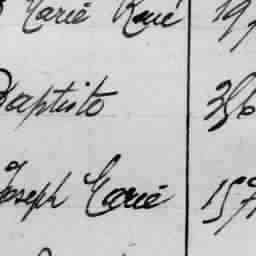 Marie René 19
Baptiste 356
Joseph Marie 157